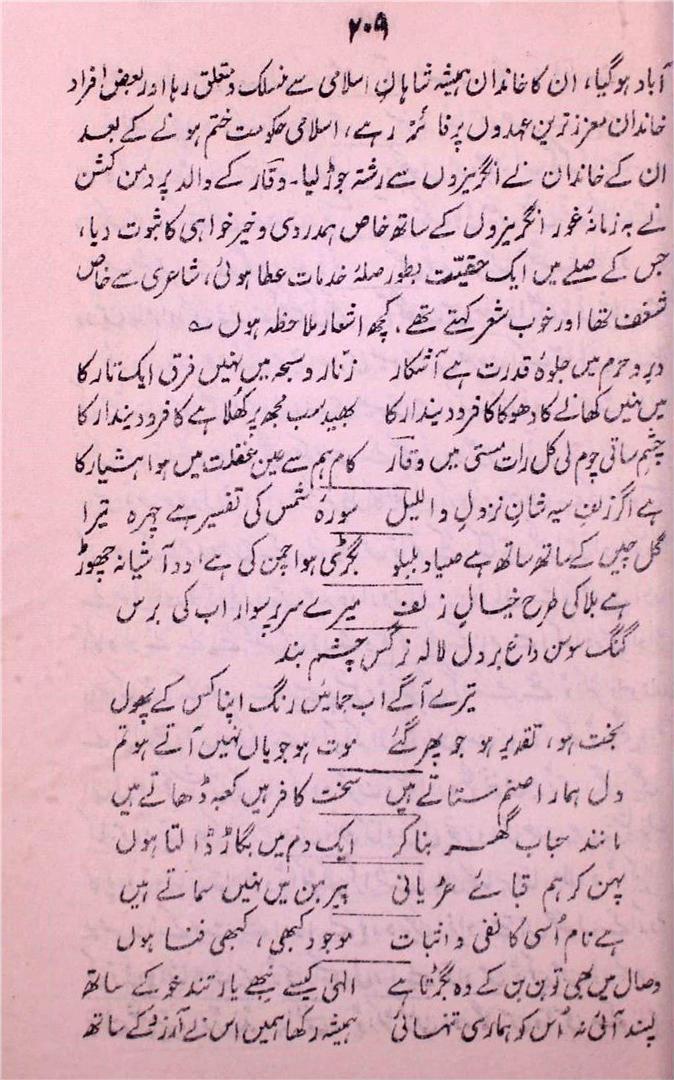 ۲۰۹
آباد ہوگیا، ان کا خاندان ہمیشہ شاہانِ اسلامی سے منسلک و متعلق رہا اور بعض افراد
خاندان معزز ترین عہدوں پر فائز رہے، اسلامی حکومت ختم ہونے کے بعد
ان کے خاندان نے انگریزوں سے رشتہ جوڑ لیا۔ وقار کے والد پر دمن کشن
نے بہ زمانہ غدر انگریزوں کے ساتھ خاص ہمدردی و خیر خواہی کا ثبوت دیا،
جس کے صلے میں ایک حقیّت بطور صلۂ خدمات عطا ہوئی، شاعری سے خاص
شغف تھا اور خوب شعر کہتے تھے۔ کچھ اشعار ملاحظہ ہوں ؎
دیر و حرم میں جلوۂ قدرت ہے آشکار زنّار و سبحہ میں نہیں فرق ایک تار کا
میں نہیں کھانے کا دھوکا کافر و دیندار کا بھید سب مجھ پر کھلا ہے کافر و دیندار کا
چشمِ ساقی چوم لی کل رات مستی میں وقارؔ کام ہم سے عین غفلت میں ہوا ہشیار کا
ہے اگر زلفِ سیہ شانِ نزولِ واللیل سورۂ شمس کی تفسیر ہے چہرہ تیرا
گل چیں کے ساتھ ساتھ ہے صیاد بلبلو بگڑی ہوا چمن کی ہے اور آشیانہ چھوڑ
ہے بلا کی طرح خیالِ زلف میرے سر پر سوار اب کی برس
گنگ سوسن داغ بر دل لالہ نرگس چشم بند
تیرے آگے اب جمائیں رنگ اپنا کس کے پھول
بخت ہو، تقدیر ہو جو پھر گئے موت ہو جو یاں نہیں آتے ہو تم
دل ہمارا صنم ستاتے ہیں سخت کافر ہیں کعبہ ڈھاتے ہیں
مانند حباب گھر بنا کر ایک دم میں بگاڑ ڈالتا ہوں
پہن کر ہم قبائے عریانی پیرہن میں نہیں سماتے ہیں
ہے نام اُسی کا نفی و اثبات موجود کبھی، کبھی فنا ہوں
وصال میں بھی تو بن بن کے وہ بگڑتا ہے الٰہی کیسے نبھے یار تند خو کے ساتھ
پسند آئی نہ اُس کو ہماری تنہائی ہمیشہ رکھا ہمیں اس نے آرزو کے ساتھ